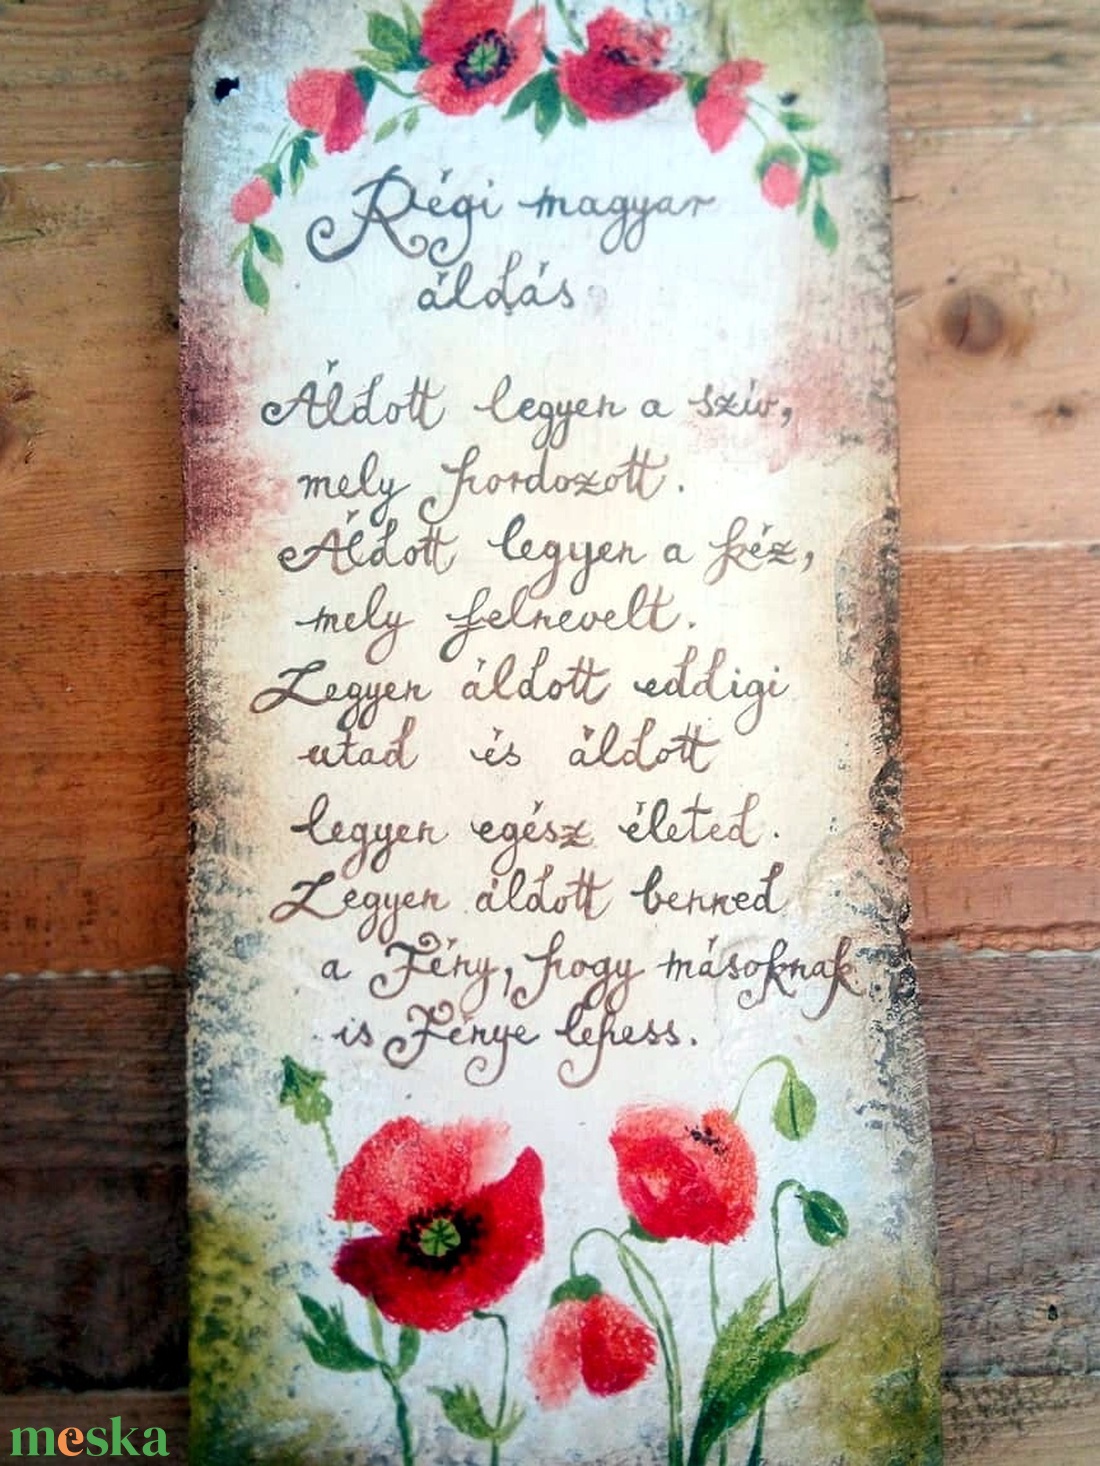 Régi magyar
áldás
Áldott legyen a szív,
mely hordozott.
Áldott legyen a kéz,
mely felnevelt.
Legyen áldott eddigi
utad és áldott
legyen egész életed.
Legyen áldott benned
a Fény, hogy másoknak
is Fénye lehess.
meska